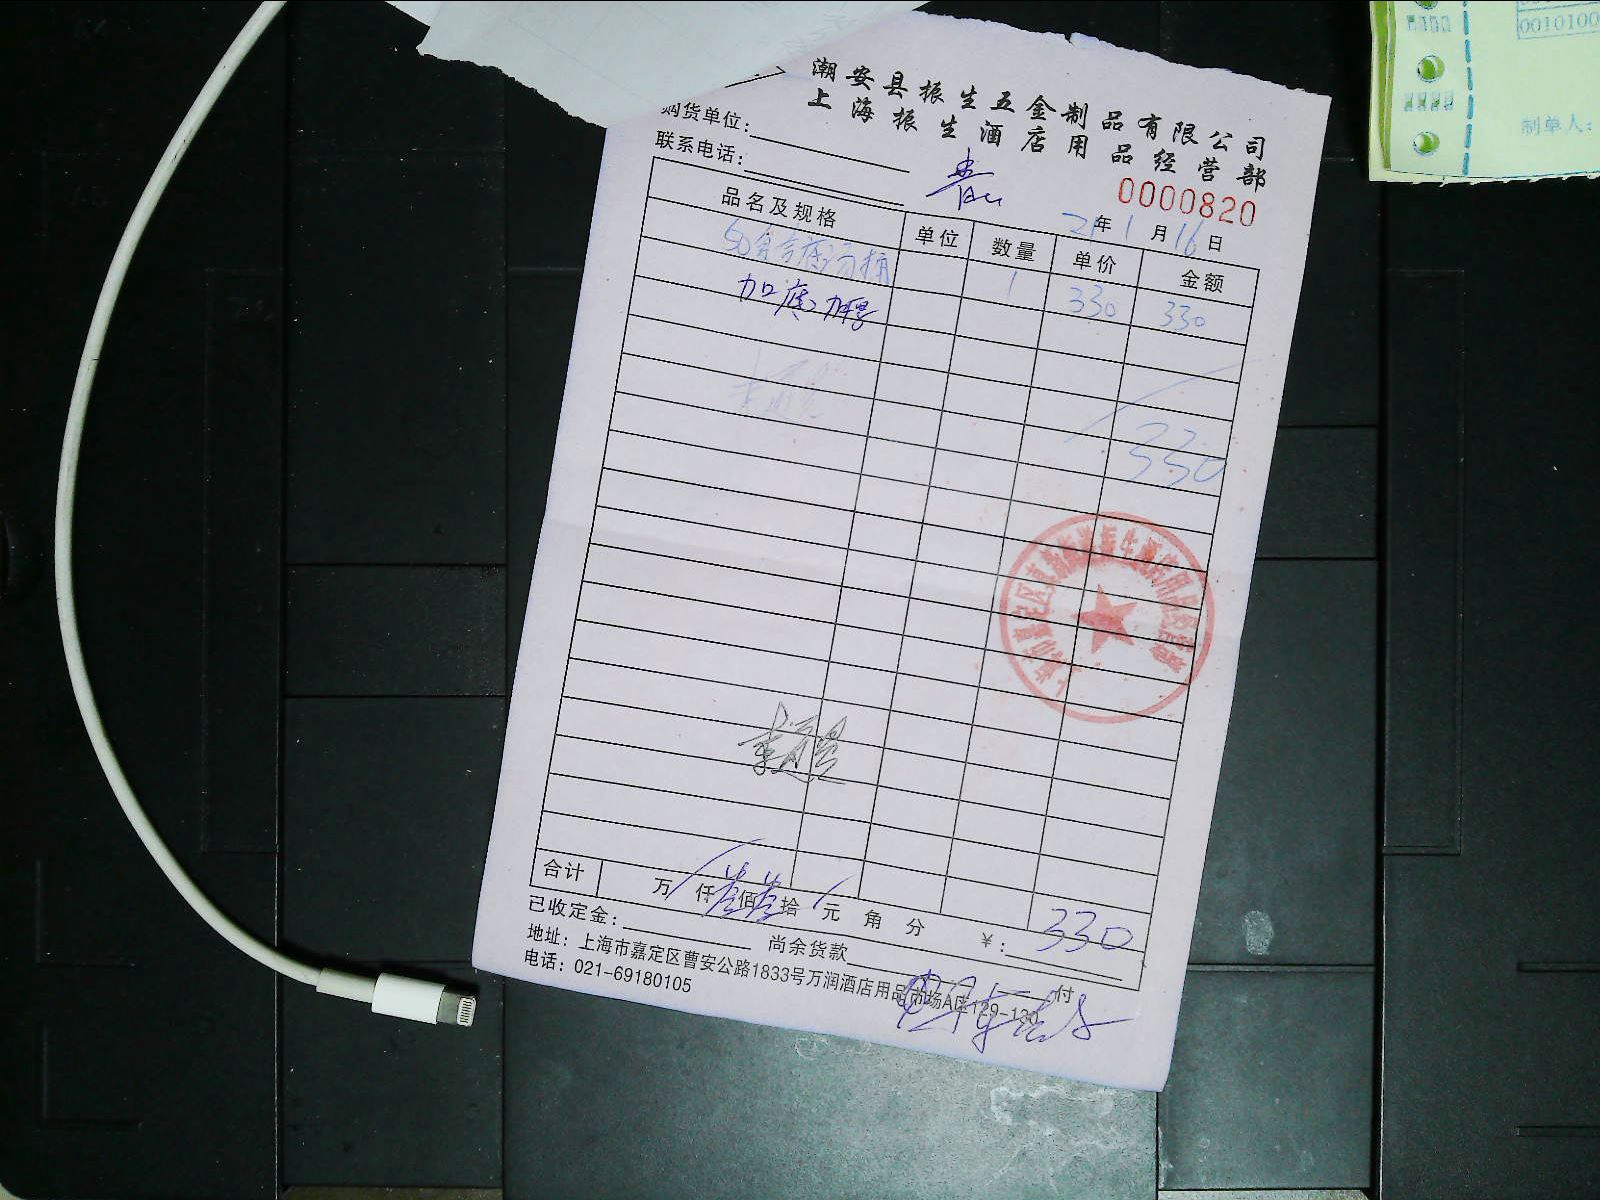 潮安县振生五金制品有限公司
上海振生酒店用品经营部
购货单位:
联系电话:
0000820
21年1月16日
品名及规格 单位 数量 单价 金额
50复合底汤桶 1 330 330
加底加厚
330
合计 万 仟叁佰叁拾 元 角 分 ¥: 330
已收定金: 尚余货款 付
地址: 上海市嘉定区曹安公路1833号万润酒店用品市场A区129-130
电话: 021-69180105
0010100
制单人: